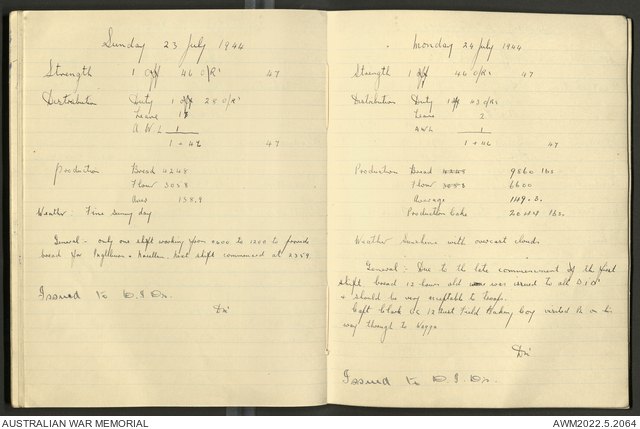 Sunday 23 July 1944
Strength 1 Off 46 O/Rs 47
Distribution Duty 1 off 28 O/Rs
Leave 17
A.W.L 1
1 + 46 47
Production Bread 4248
Flour 3058
Aver 138.9
Weather: Fine sunny day
General - only one shift working from 0400 to 1200 to provide
bread for + . Next shift commenced at 2359.
Issued to D.I.Ds.
Monday 24 July 1944
Strength 1 off 46 O/Rs 47
Distribution Duty 1 off 43 O/Rs
Leave 2
AWL 1
1 + 46 47
Production Bread 9860 lbs.
Flour 6600
Average 149.3.
Production Cake 2044 lbs.
Weather with overcast clouds
General: Due to the late commencement of the first
shift, bread 12 hours old was issued to all D.I.Ds
+ should be very acceptable to troops.
Capt Clark OC 12 Aust Field Baking Coy visited on his
way through to Wagga
Issued to D.I.Ds.
AUSTRALIAN WAR MEMORIAL
AWM2022.5.2064